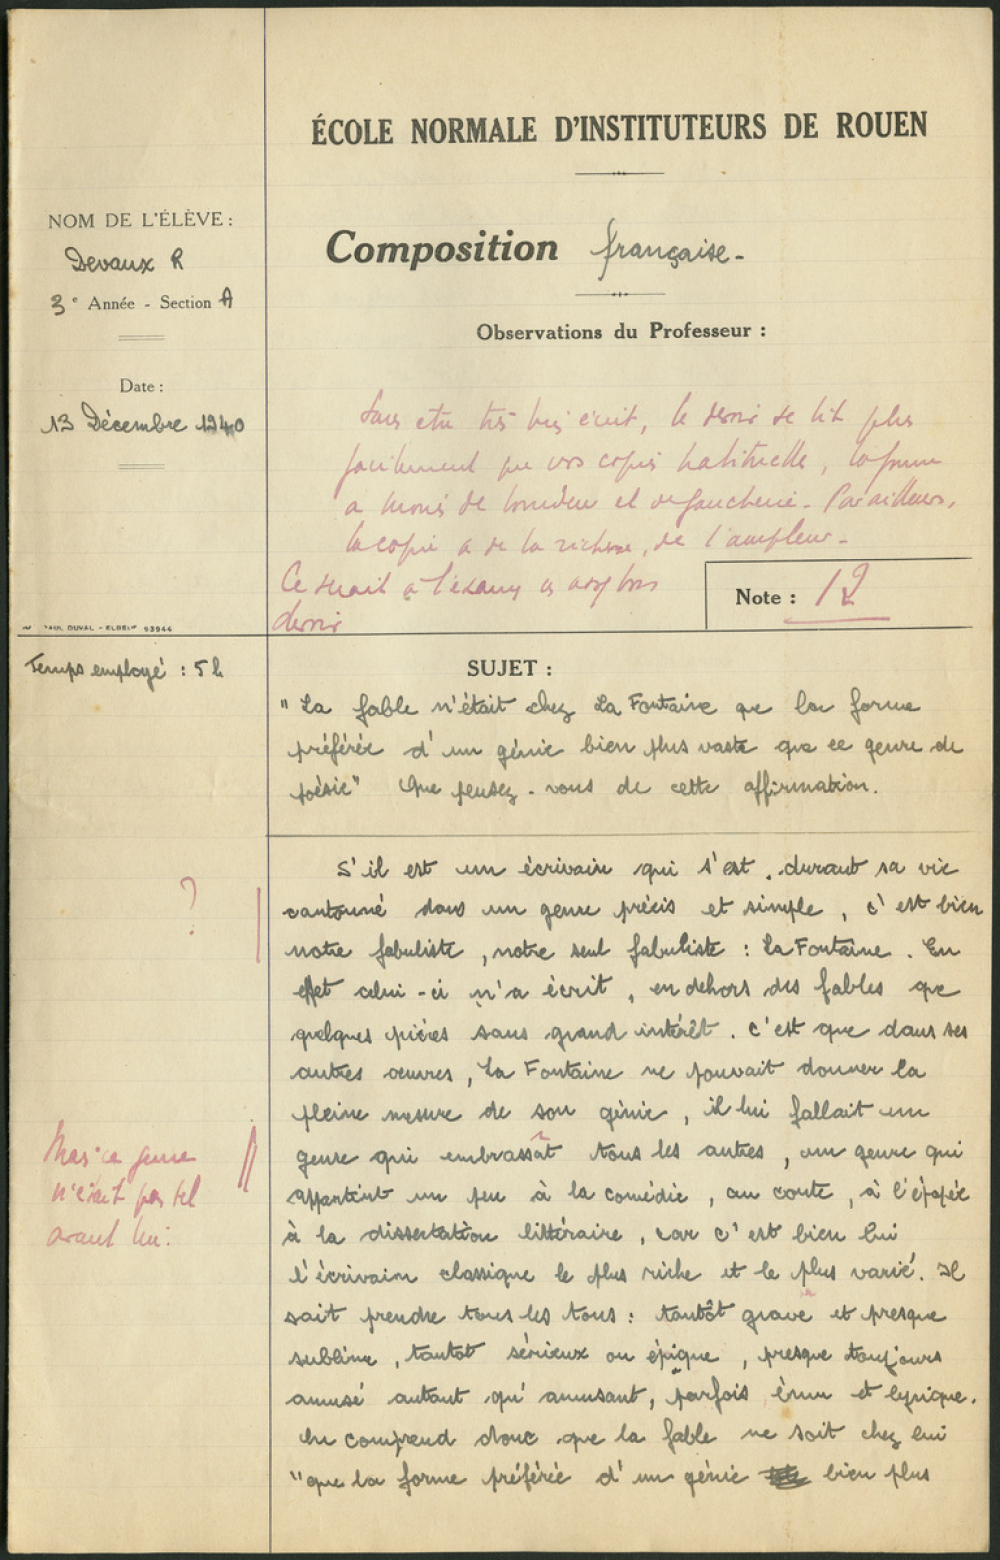 ÉCOLE NORMALE D'INSTITUTEURS DE ROUEN
NOM DE L'ÉLÈVE :
Devaux R
3e Année - Section A
Date :
13 Décembre 1940
PAUL DUVAL - ELBEUF 93944
Composition française.
Observations du Professeur :
Sans etre très bien écrit, le devoir se lit plus
facilement que vos copies habituelles, la forme
a moins de lourdeur et de gaucherie. Par ailleurs,
la copie a de la richesse, de l'ampleur.
Ce serait à l'examen un assez bon
devoir
Note : 12
Temps employé : 5 h
SUJET :
"La fable n'était chez La Fontaine que la forme
préférée d'un génie bien plus vaste que ce genre de
poésie" Que pensez-vous de cette affirmation.
S'il est un écrivain qui s'est, durant sa vie
cantonné dans un genre précis et simple, c'est bien
notre fabuliste, notre seul fabuliste : La Fontaine. En
effet celui-ci n'a écrit, en dehors des fables que
quelques pièces sans grand intérêt. C'est que dans ses
autres œuvres, La Fontaine ne pouvait donner la
pleine mesure de son génie, il lui fallait un
genre qui embrassât tous les autres, un genre qui
appartint un peu à la comédie, au conte, à l'épopée
à la dissertation littéraire, car c'est bien lui
l'écrivain classique le plus riche et le plus varié. Il
sait prendre tous les tons : tantôt grave et presque
sublime, tantot sérieux ou épique, presque toujours
amusé autant qu'amusant, parfois ému et lyrique.
On comprend donc que la fable ne soit chez lui
"que la forme préférée d'un génie bien plus
?
Mais ce genre
n'était pas tel
avant lui.